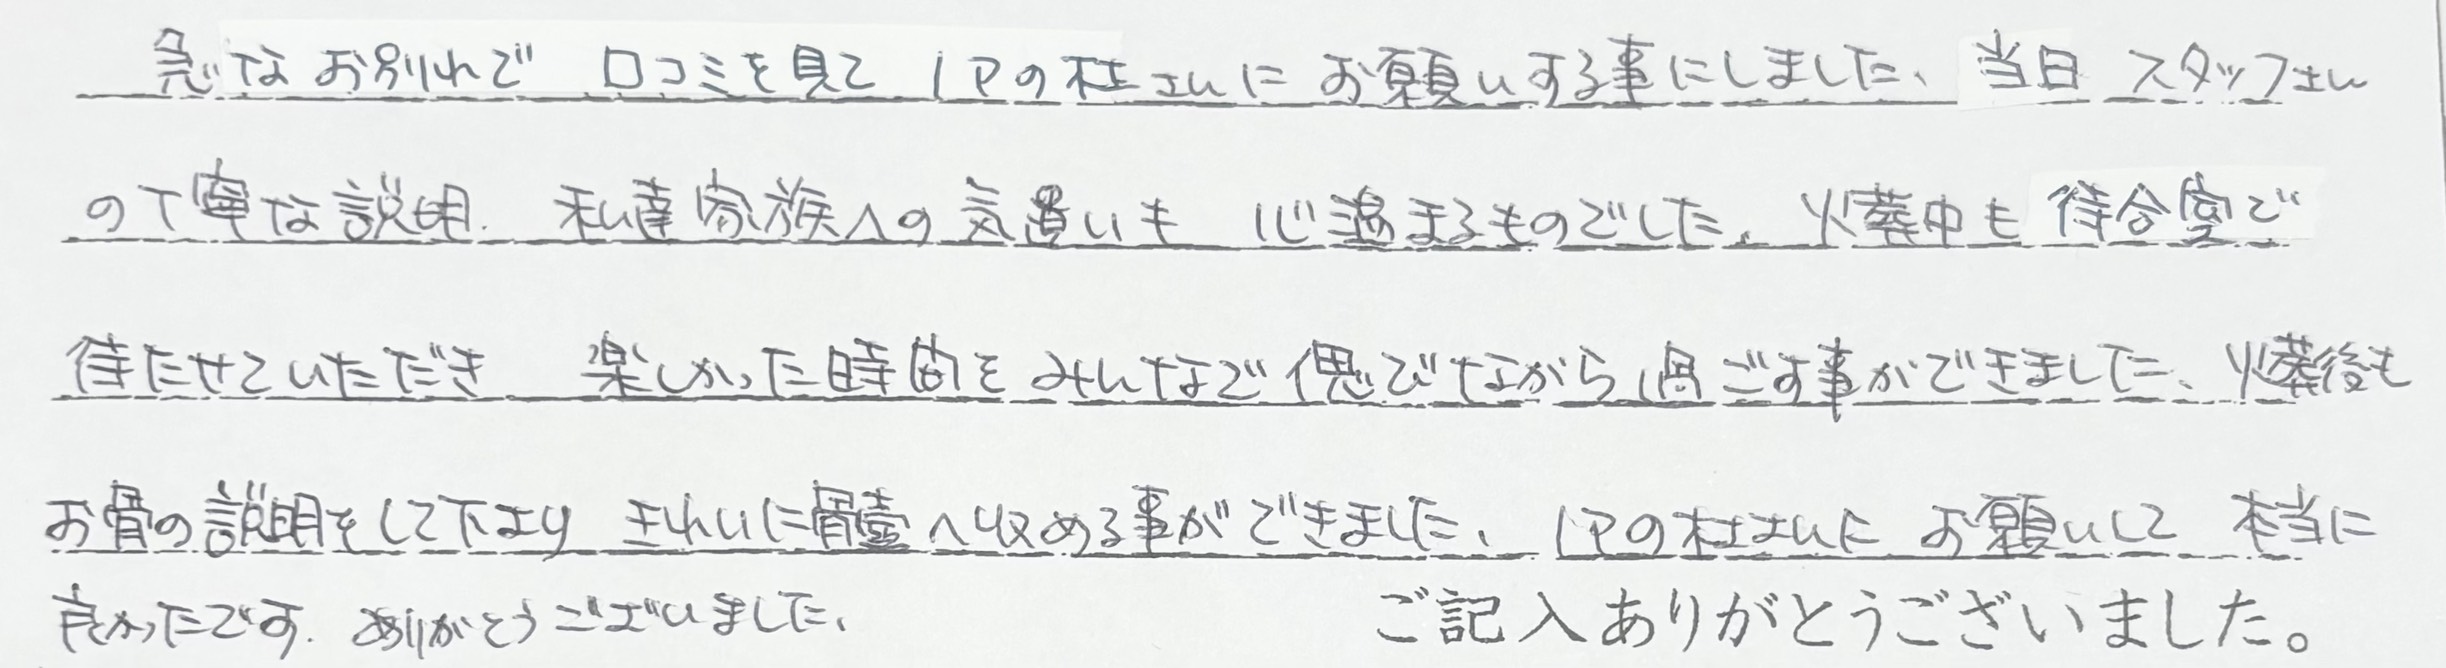 急なお別れで 口コミを見て イアの杜さんに お願いする事にしました、当日 スタッフさん
の丁寧な説明. 私達家族への気遣いも 心温まるものでした。火葬中も待合室で
待たせていただき 楽しかった時間を みんなで偲びながら過ごす事ができました、火葬後も
お骨の説明をして下さり きれいに骨壷へ収める事ができました、イアの杜さんに お願いして 本当に
良かったです. ありがとうございました、
ご記入ありがとうございました。